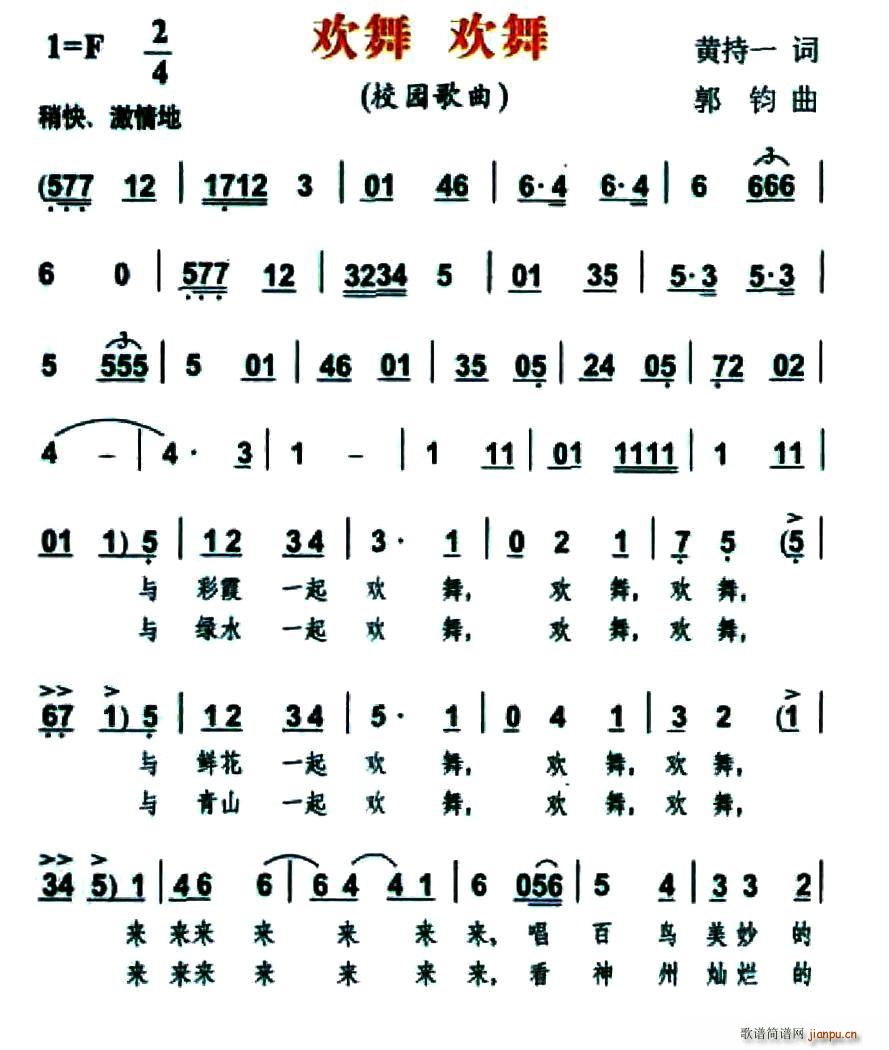 1=F 2/4 欢舞 欢舞 黄持一 词
(校园歌曲) 郭 钧 曲
稍快、激情地
(577 12 | 1712 3 | 01 46 | 6·4 6·4 | 6 666 |
3
6 0 | 577 12 | 3234 5 | 01 35 | 5·3 5·3 |
5 555 | 5 01 | 46 01 | 35 05 | 24 05 | 72 02 |
3
4 – | 4· 3 | 1 – | 1 11 | 01 1111 | 1 11 |
01 1) 5 | 12 34 | 3· 1 | 0 2 1 | 7 5 (5 |
与 彩霞 一起 欢 舞, 欢 舞, 欢 舞,
与 绿水 一起 欢 舞, 欢 舞, 欢 舞,
67 1) 5 | 12 34 | 5· 1 | 0 4 1 | 3 2 (1 |
与 鲜花 一起 欢 舞, 欢 舞, 欢 舞,
与 青山 一起 欢 舞, 欢 舞, 欢 舞,
34 5) 1 | 46 6 | 64 41 | 6 056 | 5 4 | 33 2 |
来 来来 来 来 来 来, 唱 百 鸟 美妙 的
来 来来 来 来 来 来, 看 神 州 灿烂 的
歌谱简谱网 jianpu.cn